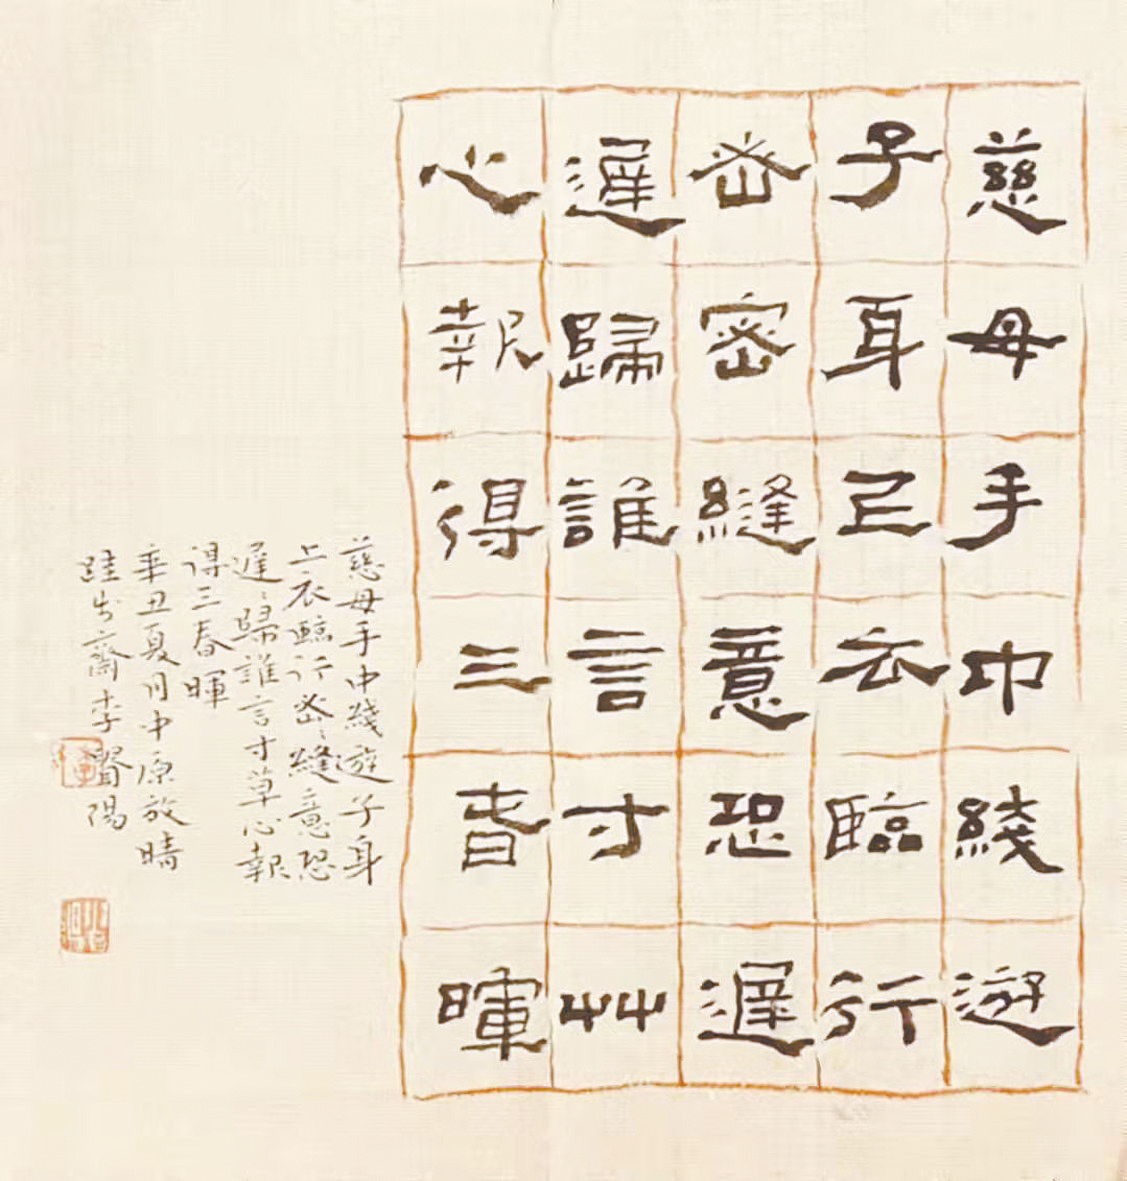 慈母手中綫遊
子身上衣臨行
峚密縫意恐遲
遲歸誰言寸艸
心報得三春暉
慈母手中綫遊子身
上衣臨行峚〻縫意恐
遲〻歸誰言寸草心報
得三春暉
辛丑夏月中原放晴
跬步齋李賢陽